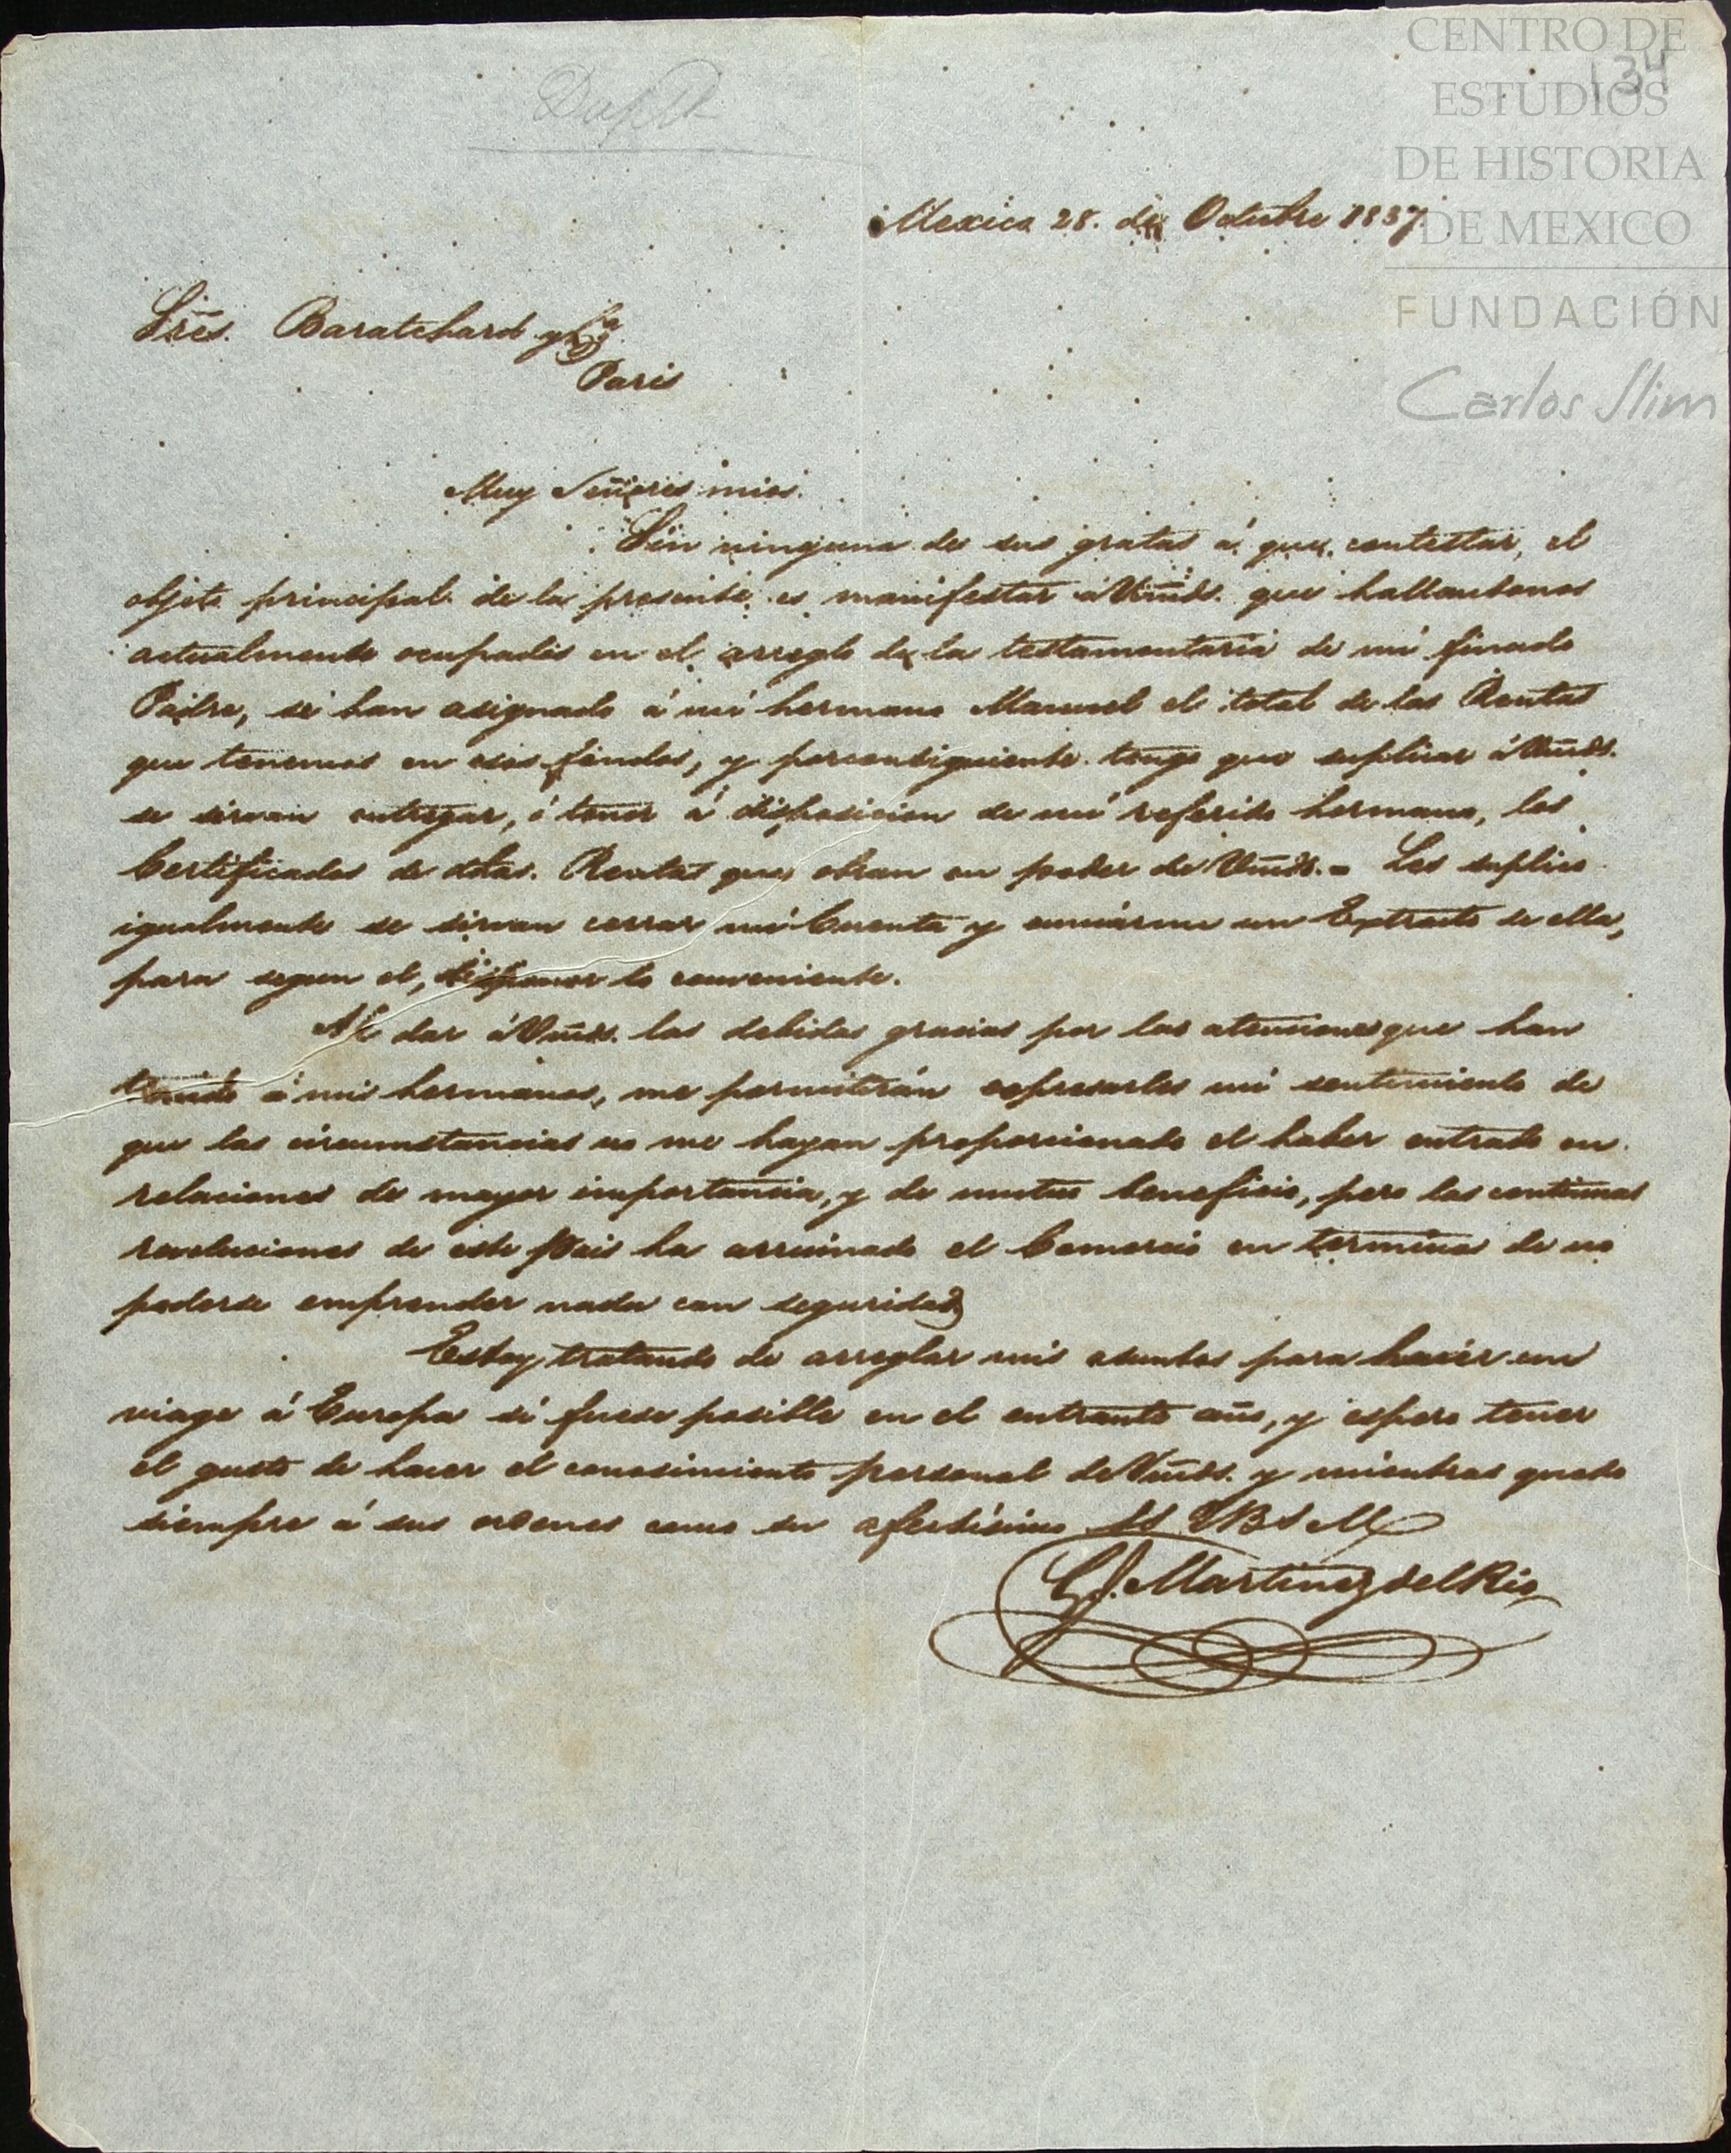 CENTRO DE
ESTUDIOS
DE HISTORIA
DE MEXICO
FUNDACIÓN
Carlos Slim
134
Mexico 28. de Octubre 1837.
Sres. Baratchard y Ca.
Paris
Muy Señores mios.
Sin ninguna de sus gratas á que contestar, el
objeto principal de la presente es manifestar á Vmds. que hallandonos
actualmente ocupados en el arreglo de la testamentaria de mi finado
Padre, se han asignado á mi hermano Manuel el total de las Rentas
que tenemos en esos fondos, y porconsiguiente tengo que suplicar á Vmds.
se sirvan entregar, ó tener á disposicion de mi referido hermano, los
Certificados de dhas. Rentas que obran en poder de Vmds.- Les suplico
igualmente se sirvan cerrar mi Cuenta y enviárme un Extracto de ella,
para segun el, disponer lo conveniente.
Al dar á Vmds. las debidas gracias por las atenciones que han
tenido á mis hermanos, me permitirán espresarles mi sentimiento de
que las circumstancias no me hayan proporcionado el haber entrado en
relaciones de mayor importancia, y de mutuo beneficio, pero las continuas
revoluciones de este Pais ha arruinado el Comercio en terminos de no
poderse emprender nada con seguridad
Estoy tratando de arreglar mis asuntos para hacer un
viage á Europa si fuese posible en el entrante año, y espero tener
el gusto de hacer el conosimiento personal de Vmds. y mientras quedo
siempre á sus ordenes como su afectisimo SS QBSM
G. Martinez del Rio